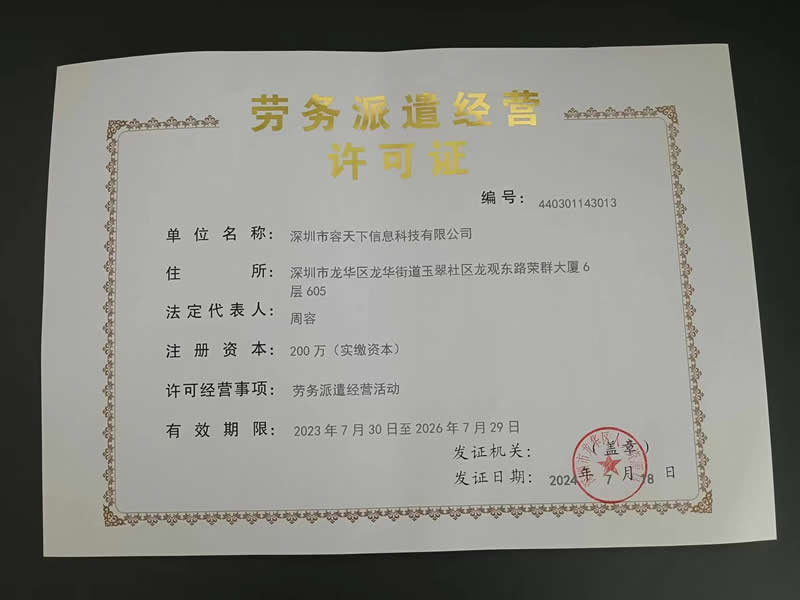 劳务派遣经营
许可证
编号: 440301143013
单位名称: 深圳市容天下信息科技有限公司
住所: 深圳市龙华区龙华街道玉翠社区龙观东路荣群大厦6
层605
法定代表人: 周容
注册资本: 200万（实缴资本）
许可经营事项: 劳务派遣经营活动
有效期限: 2023年7月30日至2026年7月29日
发证机关: （盖章）
发证日期: 2024年7月18日